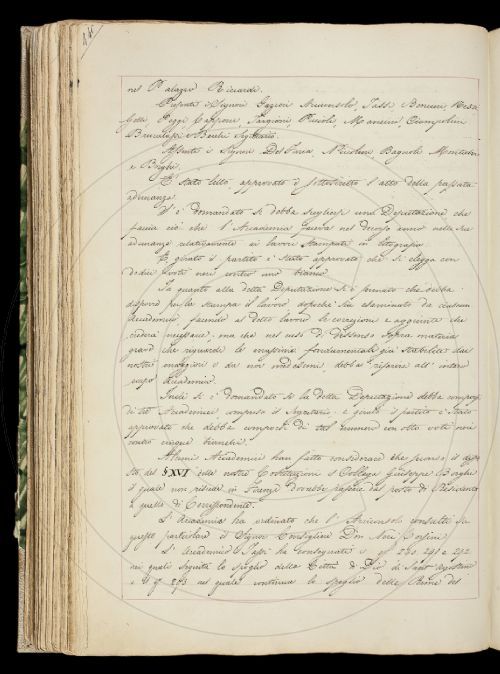 nel Palazzo Riccardi.
Presenti i Signori Gazzeri Arciconsolo, Tassi, Bencini,
Poggi Capponi, Targioni, Puccioli, Mancini, Ciampolini
Brucalassi e Becchi Segretario.
Assenti i Signori Del Furia, Niccolini, Bagnoli Montalvi
e Borghi.
È stato letto, approvato e sottoscritto l'atto della passata
adunanza.
Si è domandato se debba scegliersi una Deputazione che
faccia ciò che l'Accademia faceva nel decorso anno nelle sue
adunanze relativamente ai lavori stampati in litografia.
E girato il partito è stato approvato che si elegga con
dodici voti neri contro uno bianco.
In quanto alla detta Deputazione si è fermato che debba
disporre per la stampa il lavoro dopochè sia esaminato da ciascun
Accademico facendo al detto lavoro le correzioni e aggiunte che
crederà necessarie, ma che nel caso di dissenso sopra materia
grave che riguardi le massime fondamentali già stabilite dai
nostri maggiori o da noi medesimi, debba riferire all' intero
corpo Accademico.
Indi si è domandato se la detta Deputazione debba comporsi
di tre Accademici, compreso il Segretario, e girato il partito è stato
approvato che debba comporsi di tal numero con otto voti neri
contro cinque bianchi.
Alcuni Accademici han fatto considerare che secondo il
to del § XVI delle nostre Costituzioni il Collega Giuseppe Borghi
il quale non risiede in Firenze dovrebbe passare dal posto di Residente
a quello di Corrispondente.
L'Accademia ha ordinato che l'Arciconsolo consulti su
questo particolare il Signor Consigliere Don Neri Corsini.
L'Accademico Tassi ha consegnato i q.i 290. 291 e 292
nei quali seguita lo spoglio della Città di Dio di Sant'Agostino
e il q. 293 nel quale continua lo spoglio delle Rime del